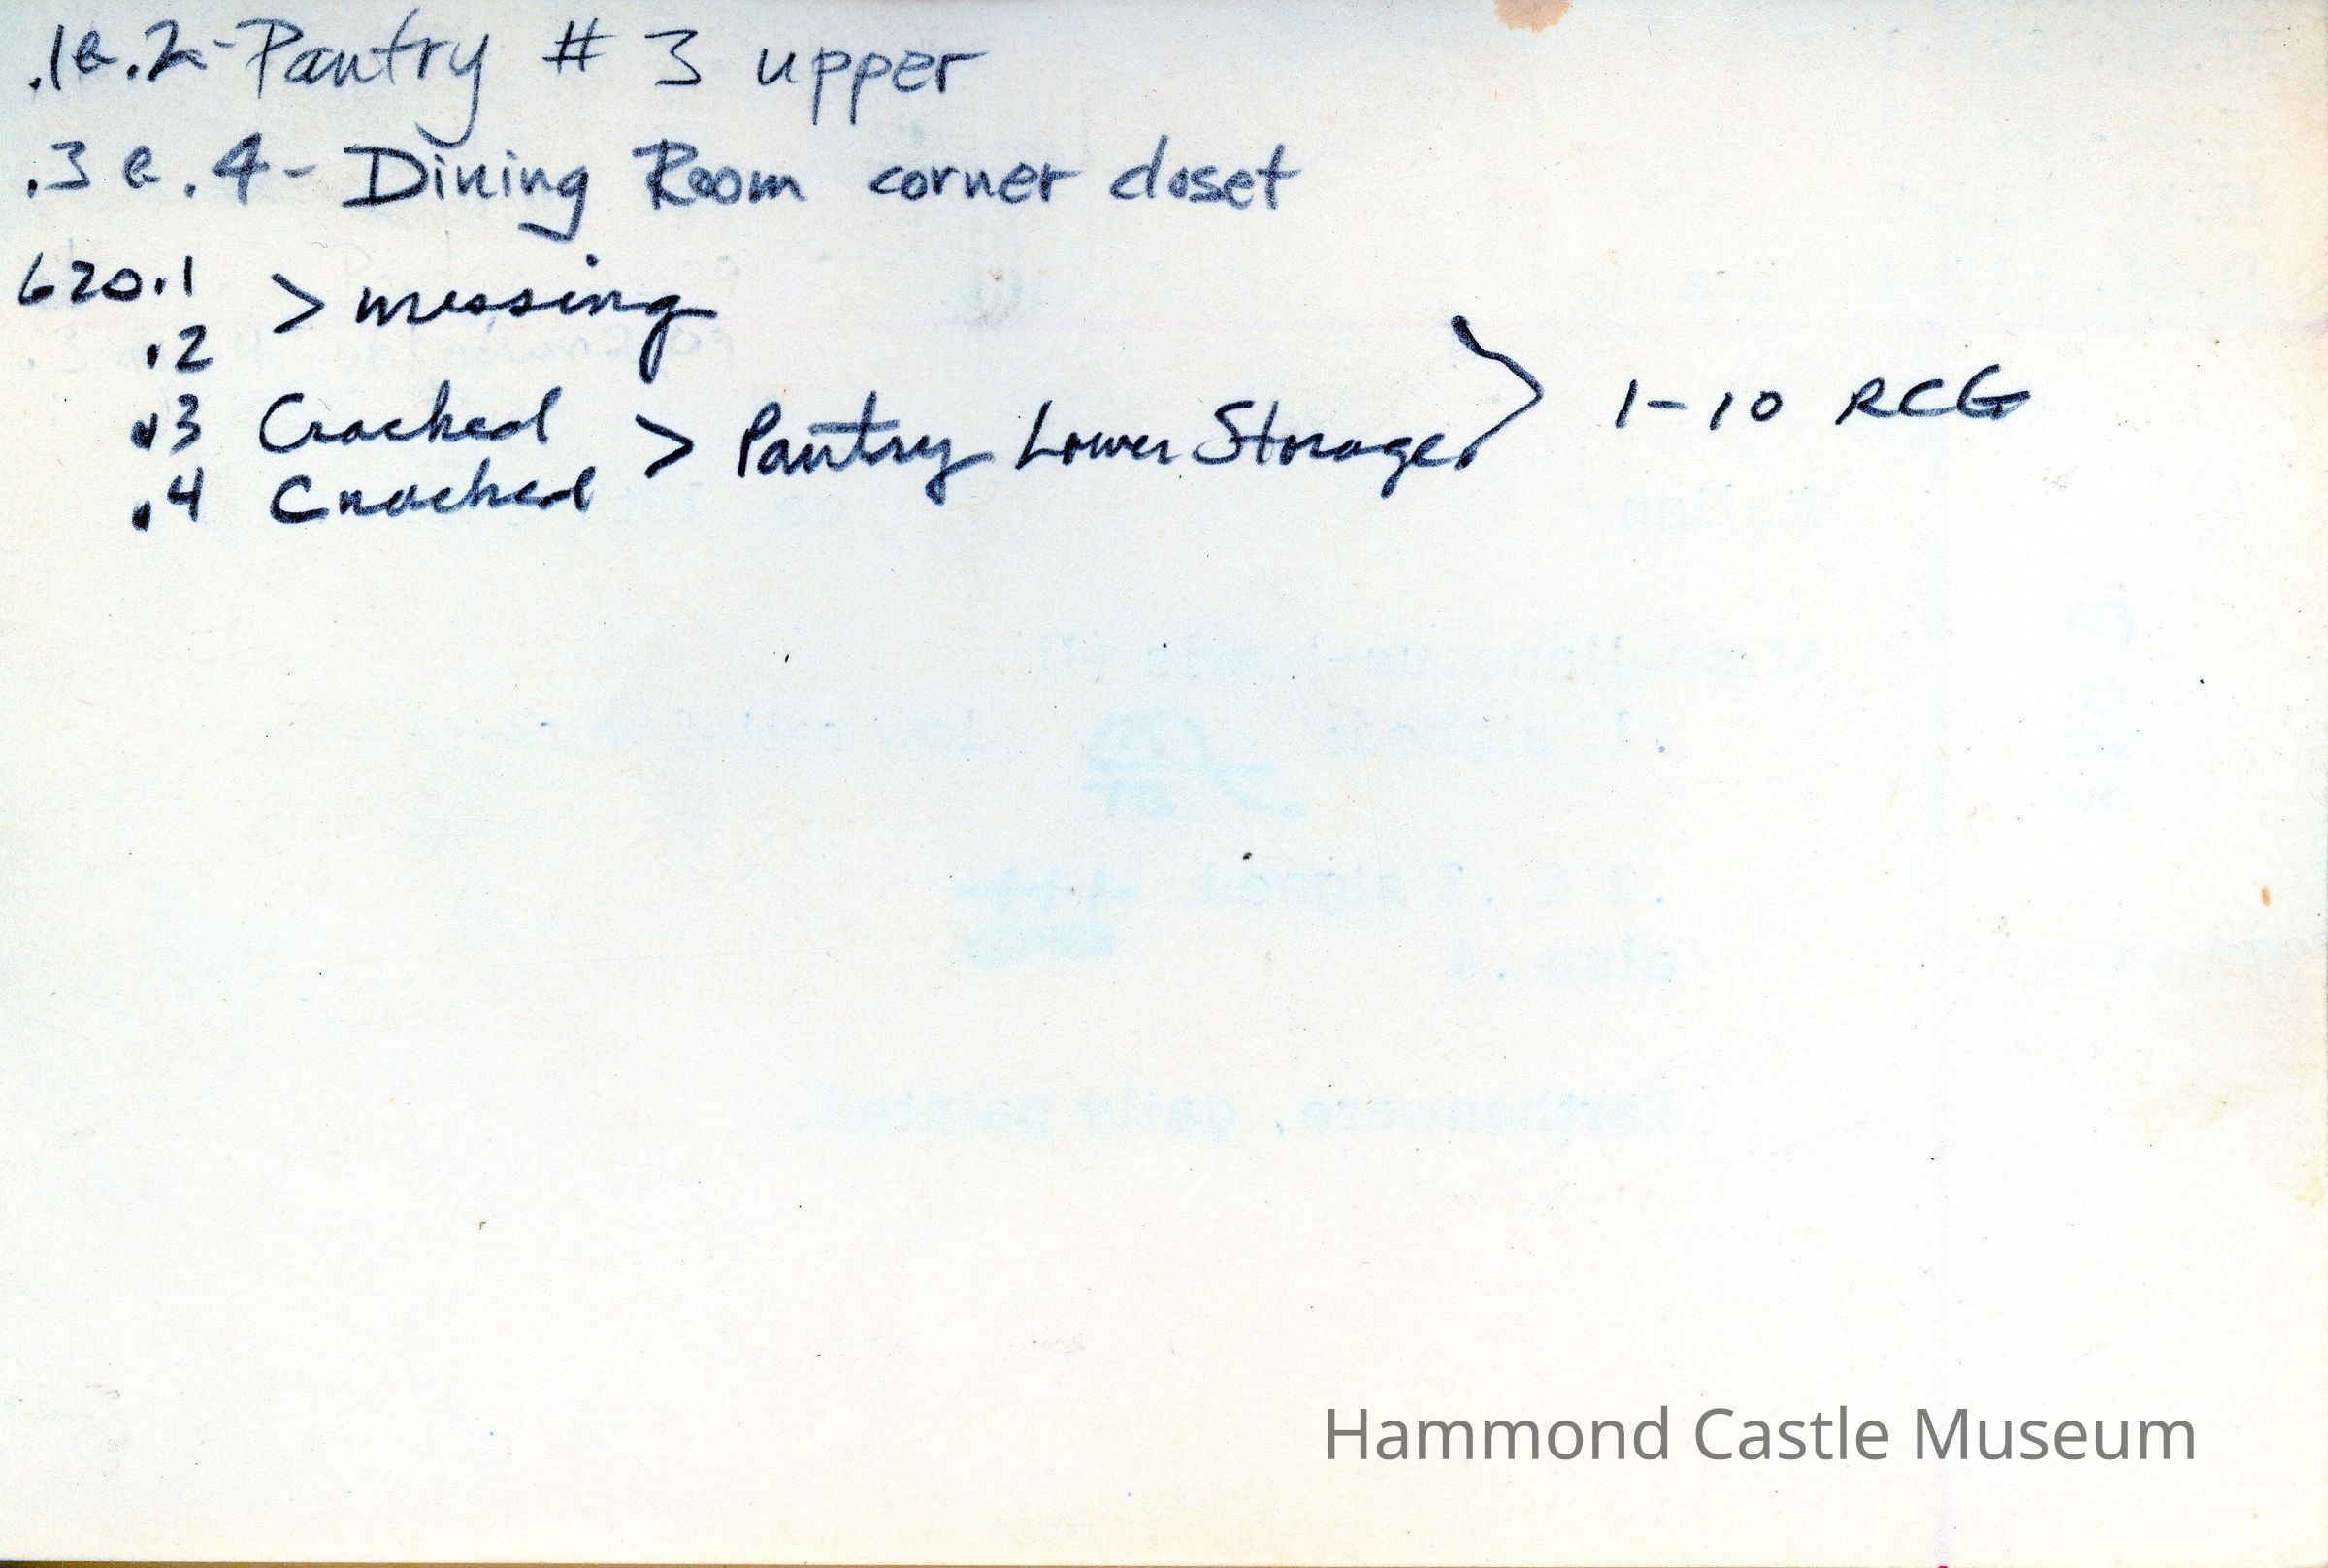 .1&.2-Pantry # 3 upper
.3 & .4- Dining Room corner closet
620.1 > missing
.2
.3 Cracked > Pantry Lower Storage > 1-10 RCG
.4 Cracked
Hammond Castle Museum